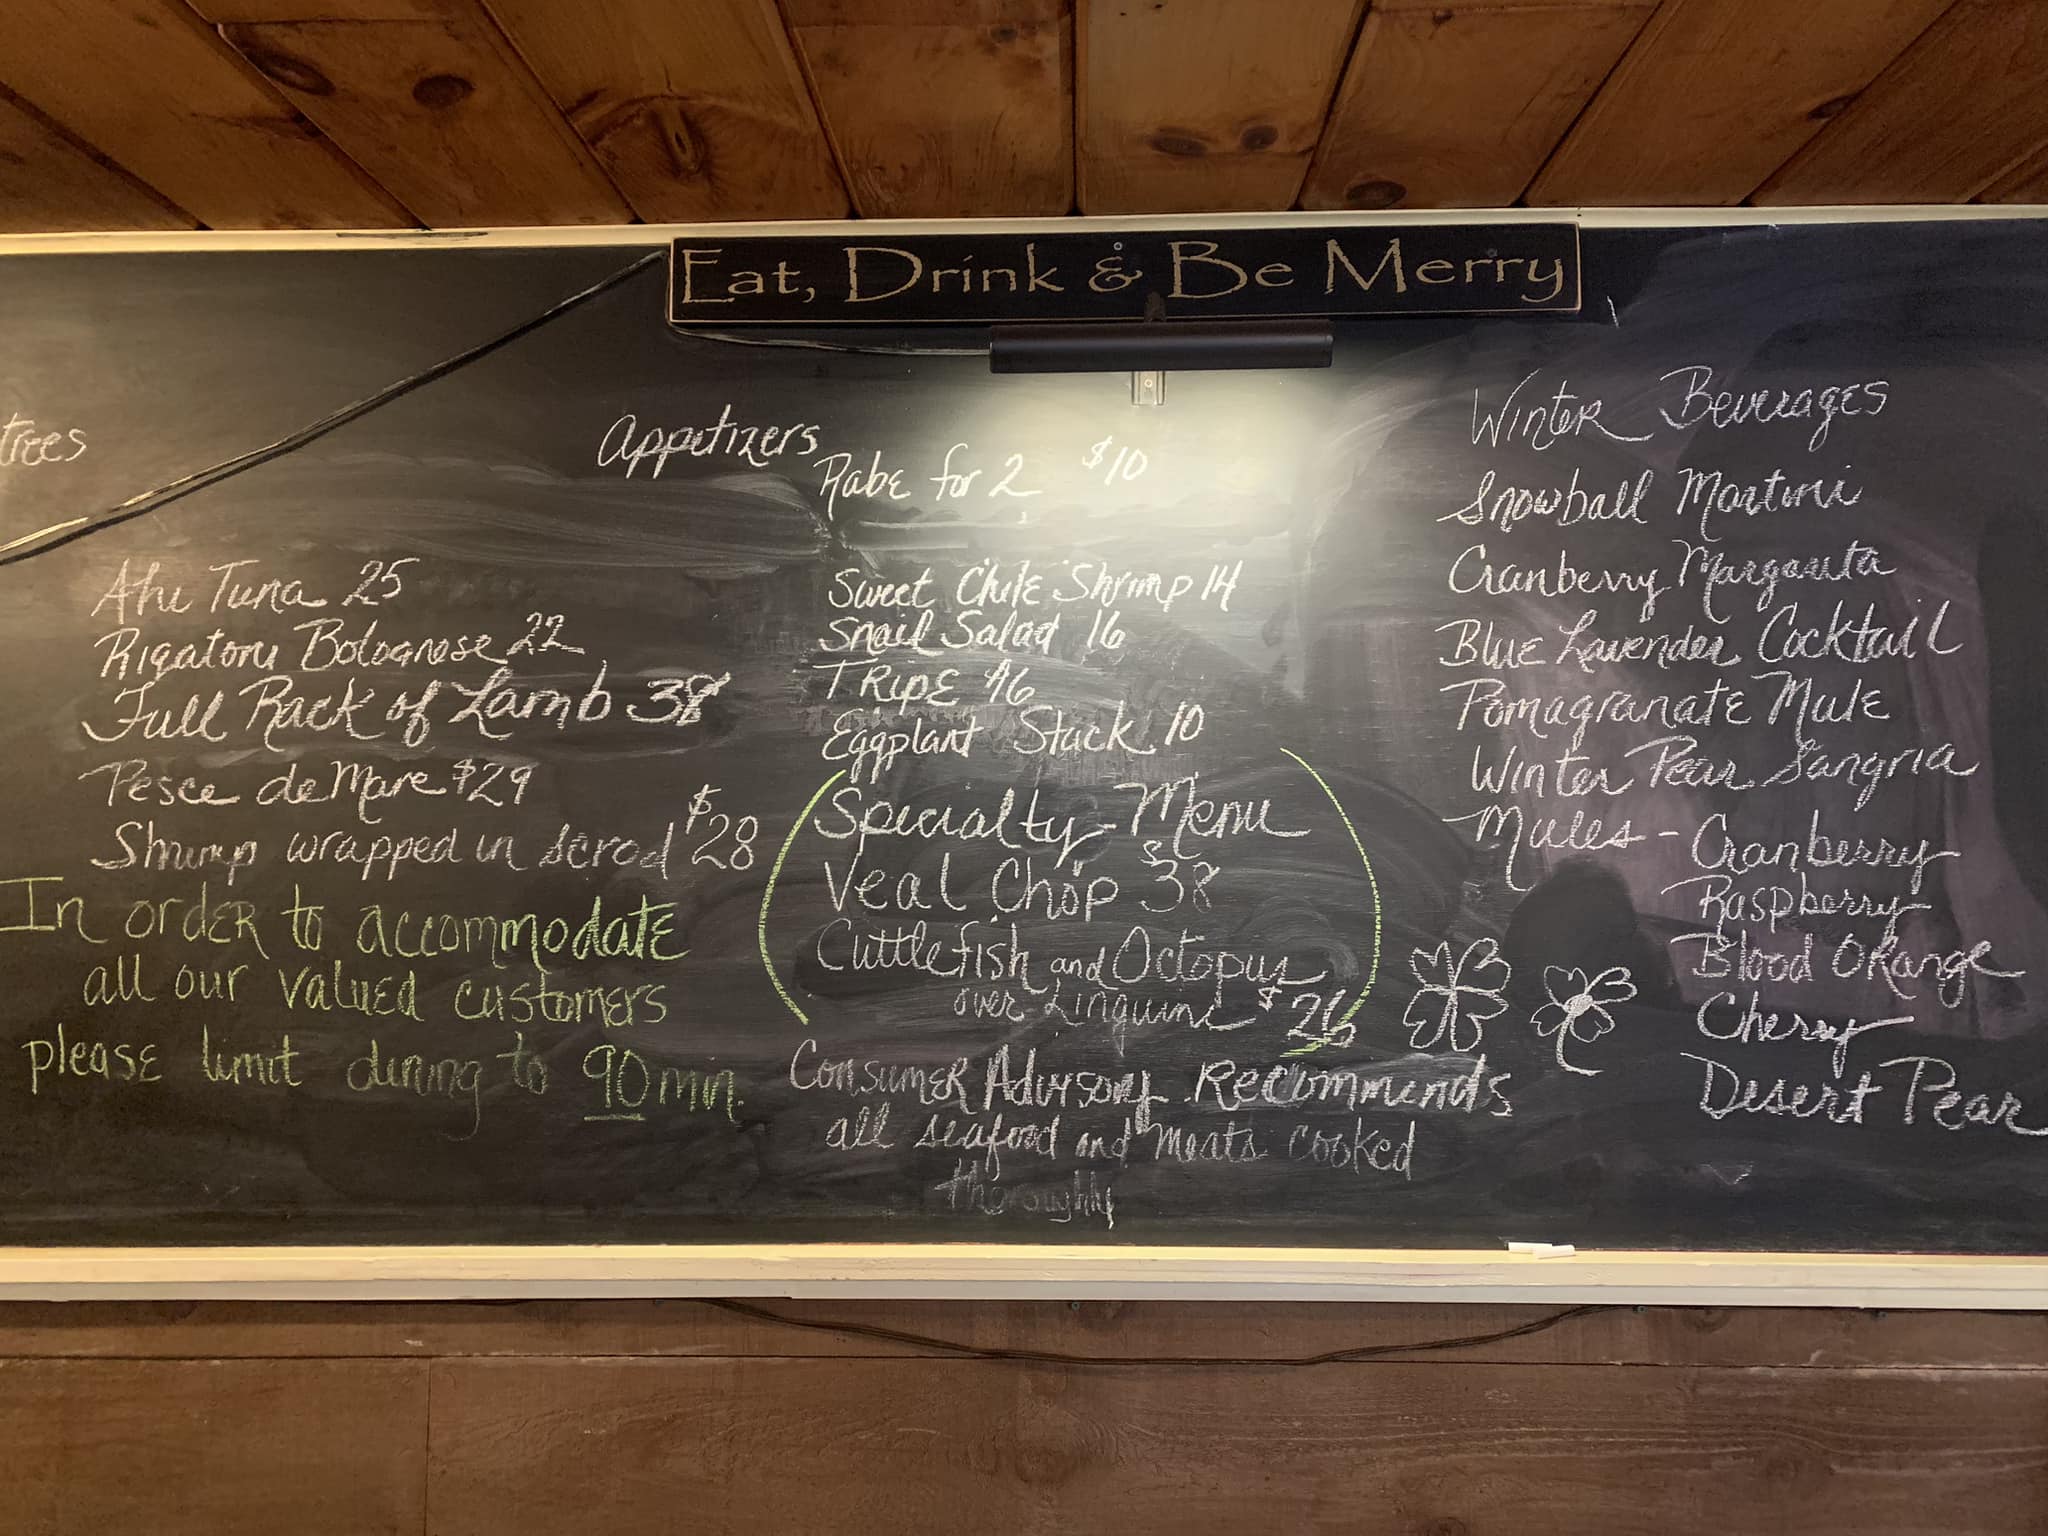 Eat, Drink & Be Merry
trees
Ahi Tuna 25
Rigatoni Bolognese 22
Full Rack of Lamb 38
Pesce de Mare $29
Shrimp wrapped in scrod $28
In order to accommodate
all our valued customers
please limit dining to 90 min.
Appetizers
Rabe for 2 $10
Sweet Chile Shrimp 14
Snail Salad 16
Tripe
Eggplant Stack 10
Specialty Menu
Veal Chop $38
Cuttlefish and Octopus
over Linguini $26
Consumer Advisory Recommends
all seafood and meats cooked
thoroughly
Winter Beverages
Snowball Martini
Cranberry Margarita
Blue Lavender Cocktail
Pomagranate Mule
Winter Pear Sangria
Mules - Cranberry
Raspberry
Blood Orange
Cherry
Desert Pear